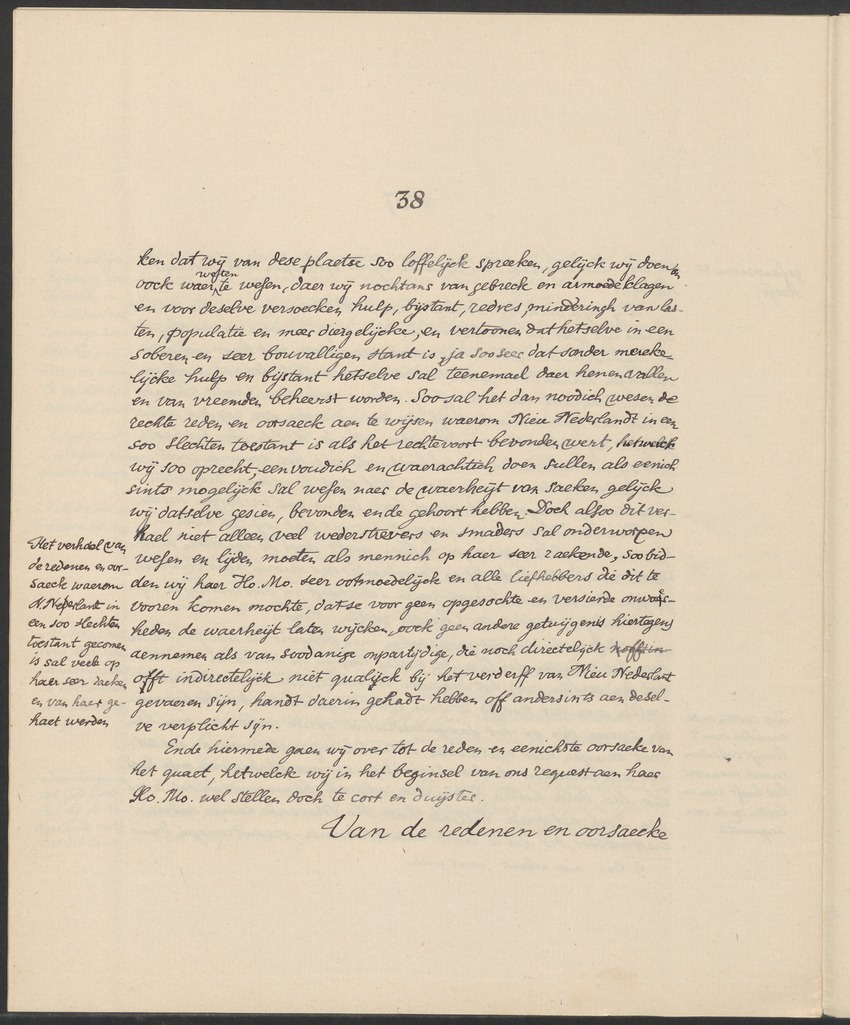 38
ken dat wij van dese plaetse soo loffelijck spreeken, gelijck wij doen en
weten
oock waer te wesen, daer wij nochtans van gebreck en armoede klagen
en voor deselve versoecken hulp, bijstant, redres, minderingh van las-
ten, populatie en meer diergelijcke, en vertoonen dat hetselve in een
soberen en seer bouvalligen stant is, ja soo seer dat sonder mercke-
lijcke hulp en bijstant hetselve sal teenemael daer henen vallen
en van vreemden beheerst worden. Soo sal het dan noodich wesen de
rechte reden en oorsaeck aen te wijsen waerom Nieu Nederlandt in een
soo slechten toestant is als het rechtevoort bevonden wert, hetwelck
wij soo oprecht, eenvoudich en waerachtich doen sullen als eenich
sints mogelijck sal wesen naer de waerheijt van saeken gelijck
wij datselve gesien, bevonden ende gehoort hebben. Doch alsoo dit ver-
hael niet alleen veel wederstrevers en smaders sal onderworpen
wesen en lijden moeten als mennich op haer seer raekende, soo bid-
den wij haer Ho. Mo. seer ootmoedelijck en alle liefhebbers die dit te
vooren komen mochte, datse voor geen opgesochte en versierde onwaer-
heden de waerheijt laten wijcken, oock geen andere getuijgenis hiertegens
aennemen als van soodanige onpartijdige, die noch directelijck nofft in
offt indirectelijck niet qualijck bij het verderff van Nieu Nederlant
gevaeren sijn, handt daerin gehadt hebben off andersints aen desel-
ve verplicht sijn.
Ende hiermede gaen wij over tot de reden en eenichste oorsaeke van
het quaet, hetwelck wij in het beginsel van ons request aen haer
Ho. Mo. wel stellen doch te cort en duijster.
Van de redenen en oorsaecke
Het verhael van
de redenen en oor-
saeck waerom
N. Nederlant in
een soo slechten
toestant gecomen
is sal veele op
haer seer raeken
en van haer ge-
haet werden